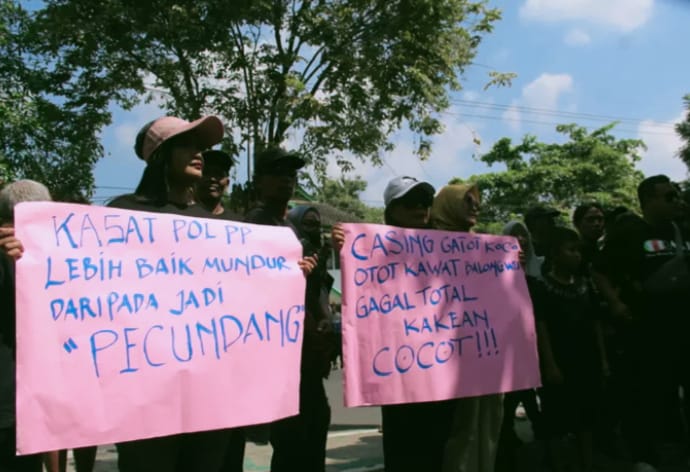 KASAT POL PP
LEBIH BAIK MUNDUR
DARIPADA JADI
"PECUNDANG"
CASING GATOT KOCO
OTOT KAWAT BALONG WESI
GAGAL TOTAL
KAKEAN
COCOT!!!